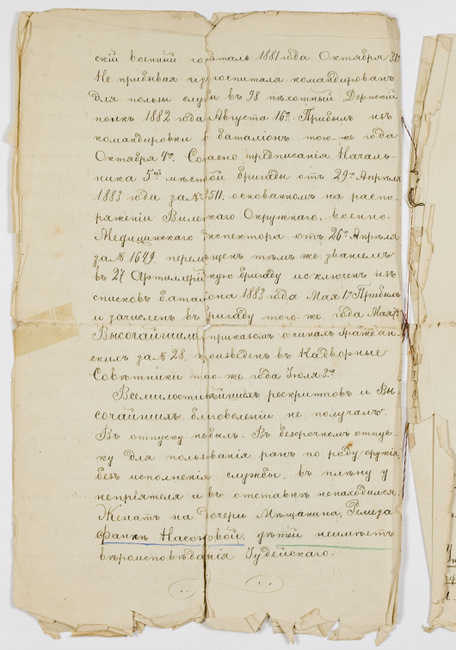 скій военный госпиталь 1881 года Октября 31го
Не прибывая изъ госпиталя командированъ
для пользы службы въ 98 пѣхотный Дерптскій
полкъ 1882 года Августа 16го. Прибылъ изъ
командировки въ баталіонъ того-же года
Октября 4го. Согласно предписанія Началь-
ника 5ой мѣстной бригады отъ 29го Апрѣля
1883 года за № 2511, основанномъ на распо-
ряженіи Виленскаго Окружнаго, военно
Медицинскаго Инспектора отъ 26го Апрѣля
за № 1649, перемѣщенъ тѣмъ же званіемъ
въ 27 Артиллерійскую бригаду и исключенъ изъ
списковъ баталіона 1883 года Мая 1го. Прибылъ
и зачисленъ въ бригаду того-же года Мая
Высочайшимъ приказомъ о чинахъ граждан-
скихъ за № 28, произведенъ въ Надворные
Совѣтники того-же года Іюля
Всемилостивѣйшихъ рескриптовъ и Вы-
сочайшихъ благоволеній не получалъ.
Въ отпуску не былъ. Въ безсрочномъ отпус-
ку для пользованія ранъ по роду оружія
безъ исполненія службы, въ плѣну у
непріятеля и въ отставкѣ не находился.
Женатъ на дочери Мѣщанина,
Фанкѣ Насоновой, дѣтей не имѣетъ
вѣроисповѣданія Іудейскаго.